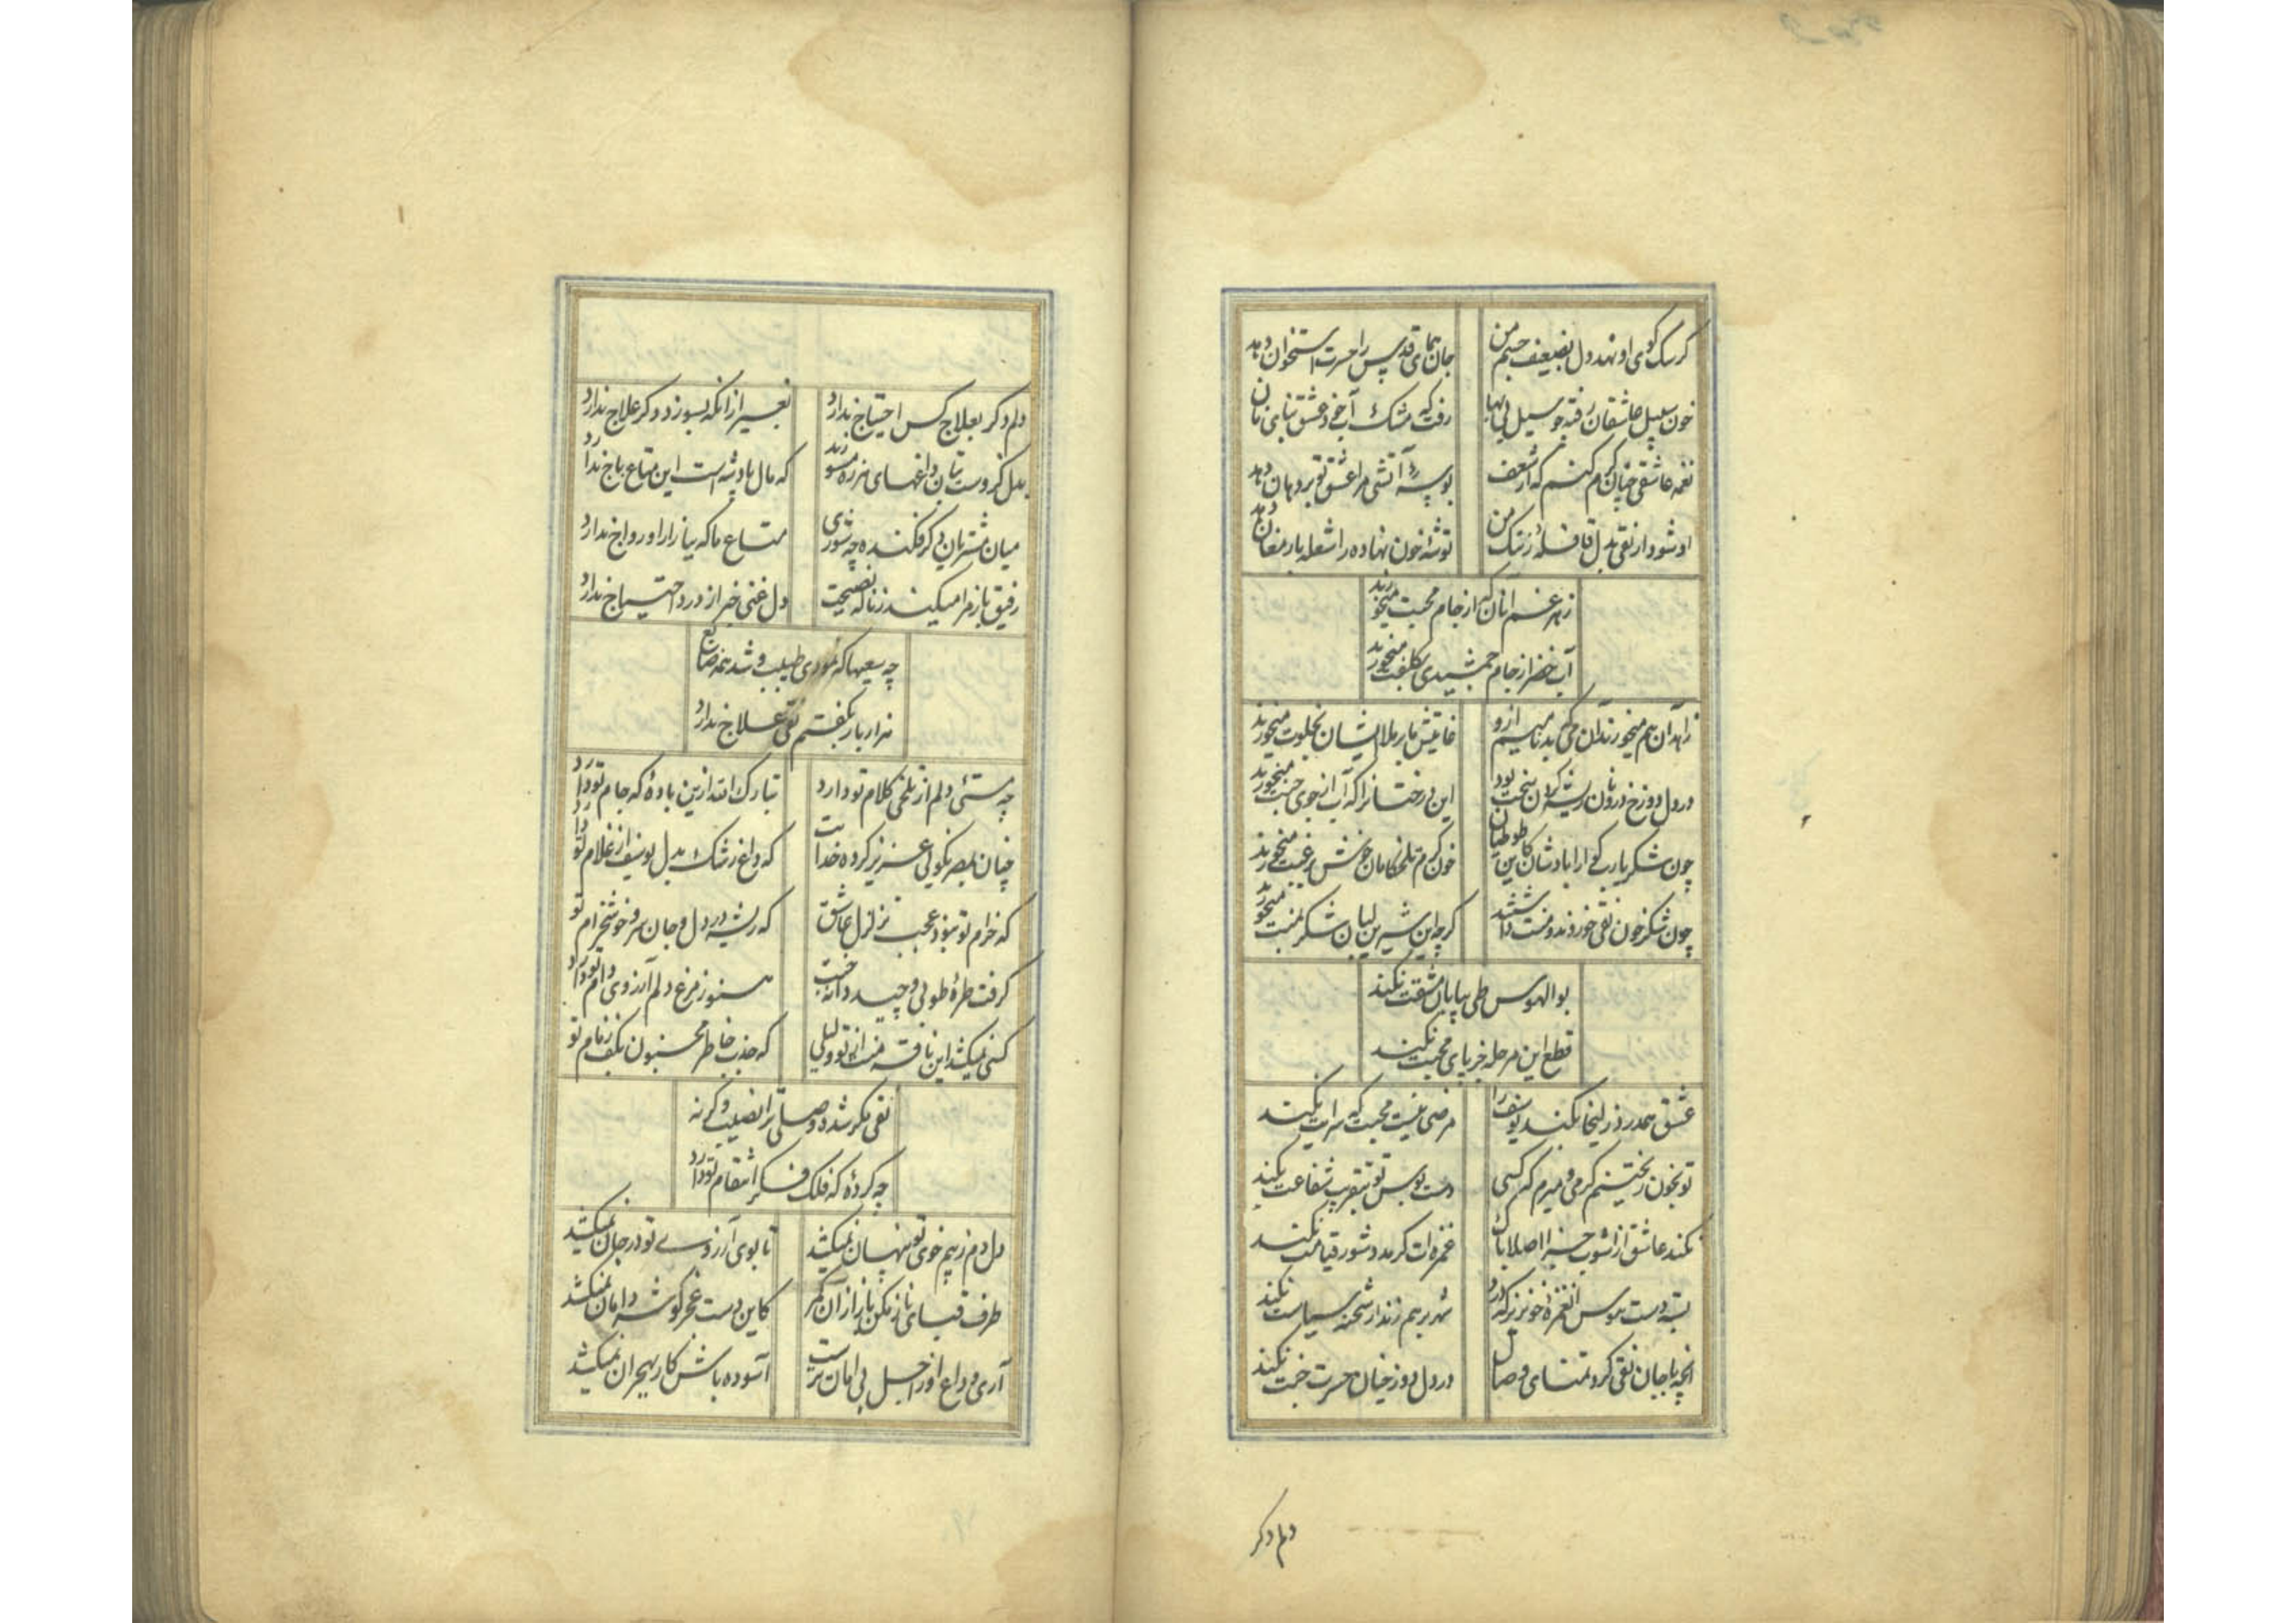 گر سگ کوی او نهد دل بضعیف جسم من
جان همای قدس را حسرت استخوان دهد
خون سبیل عاشقان رفته چو سیل بی بها
رفت که مشک آبخود عشق تو
نغمه عاشقی چنان گرم کنم که از شعف
بوسهٔ آتشی مرا عشق تو بر دهان دهد
او شود از نقی بدل قافلهٔ سرشک من
توشهٔ خون نهاده را شعله بارمغان دهد
زهر غم آنان که از جام محبت میخورند
آب خضر از جام جمشیدی بکلفت میخورند
زاهدان هم میخورند آن می که بدنامیم ازو
غایتش ما برملا ایشان بخلوت میخورند
در دل دوزخ درونان ریشه کردن سخت بود
این درختانرا که آب از جوی جنت میخورند
چون شکر یارب گوارا بادشان کاین طوطیان
خون گرم تلخکامان خوش برغبت میخورند
چون شکر خون نقی خوردند و منت داشتند
گرچه این شیرین لبان شکر بمنت میخورند
بوالهوس طی بیابان مشقت نکند
قطع این مرحله جز پای محبت نکند
عشق همدرد زلیخا نکند یوسف را
مرضی نیست محبت که سرایت نکند
تو بخون ریختنم گرمی و میرم که کسی
دست بوس تو بتقریب شفاعت نکند
نکند عاشق از آشوب جزا اصلا باک
غمزه ات گر مدد شور قیامت نکند
بسته دست هوس آن غمزهٔ خونریز که دزد
شهر بر هم زند ار شحنه سیاست نکند
آنچه با جان نقی کرد تمنای وصال
در دل دوزخیان حسرت جنت نکند
دلم دگر
دلم دگر بعلاج کس احتیاج ندارد
بغیر از آنکه بسوزد دگر علاج ندارد
بدل فروست بتان داغهای هرزه مسوزید
که مال پادشه است این متاع باج ندارد
میان مشتریان دگر فکنده چه شوری
متاع ما که ببازار او رواج ندارد
رفیق باز مرا میکند زناله نصیحت
دل غنی خبر از درد احتیاج ندارد
چه سعیها که نمودی طبیب و شد همه ضایع
هزار بار بگفتم نقی علاج ندارد
چه مستئی دلم از تلخی کلام تو دارد
تبارک الله ازین بادهٔ که جام تو دارد
چنان بمصر نکوئی عزیز کرده خدایت
که داغ رشک بدل یوسف از غلام تو دارد
که خرام تو نبود عجب تزلزل عاشق
که ریشه در دل و جان سرو خوشخرام تو
گرفت طرهٔ طوبی و چید دانهٔ جنت
هنوز مرغ دلم آرزوی دام تو دارد
کسی نمیکشد این ناقه منت از تو و لیلی
که جذب خاطر مجنون بکف زمام تو
نقی مگر شده وصلی ترا نصیب وگرنه
چه کردهٔ که فلک فکر انتقام تو دارد
دل دم ز بیم خوی تو پنهان نمیکشد
تا بوی آرزوی تو در جان نمیکشد
طرف قبای ناز مکن باز از آن کمر
کاین دست عجز گوشه دامان نمیکشد
آری وداع او ز اجل بی امان تر است
آسوده باش کار بهجران نمیکشد